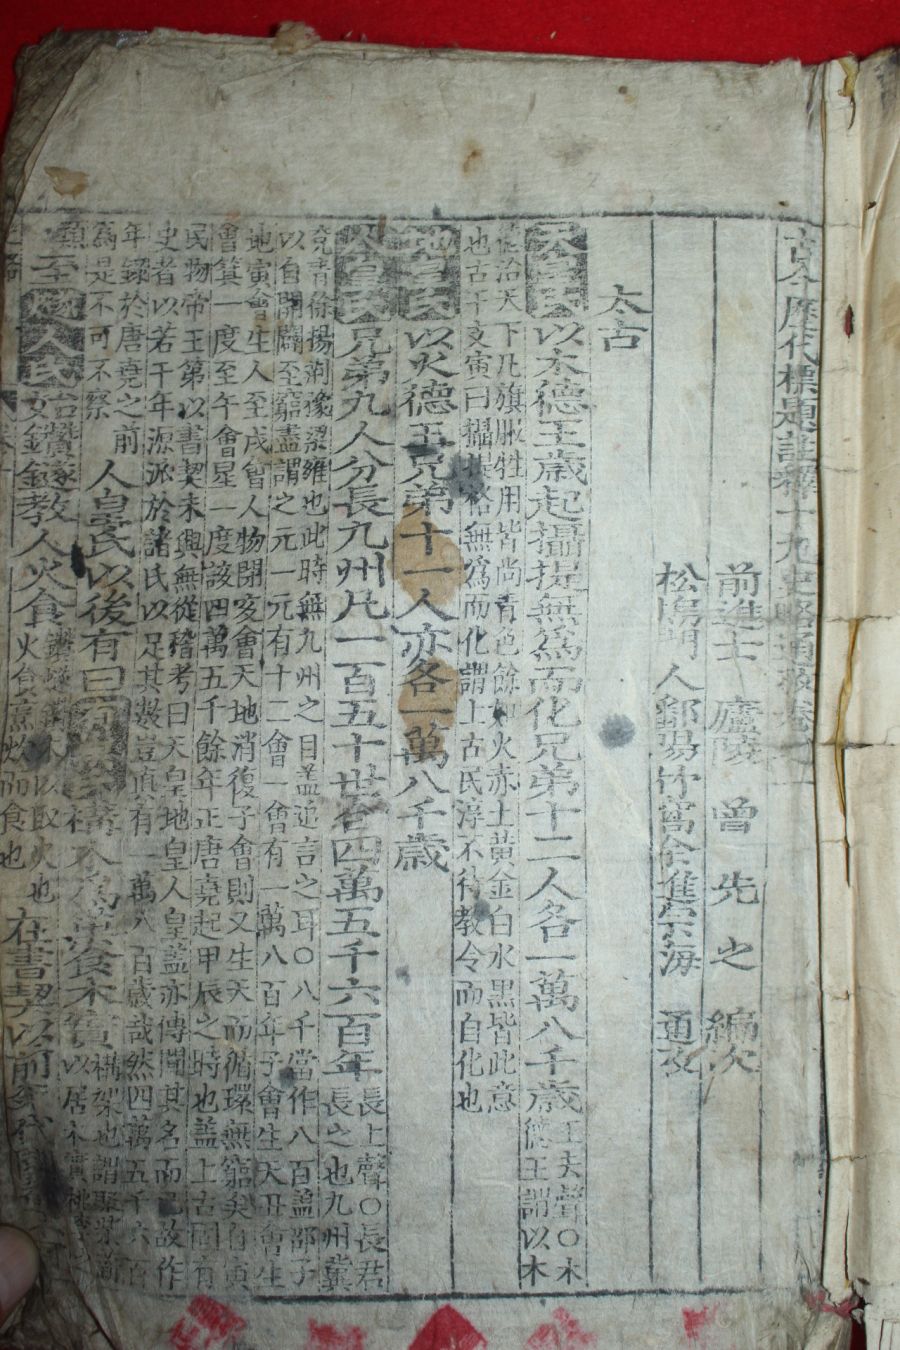 古今歷代標題註釋十九史略通攷卷之
前進士 廬陵 曾先之 編次
松塢門人鄱陽竹窩余進宗海 通攷
太古
天皇氏以木德王歲起攝提無爲而化兄弟十二人各一萬八千歲
王去聲○木
德王謂以木
德治天下凡旗服牲用皆尚靑色餘如火赤土黃金白水黑皆此意
也古干支寅曰攝提格無爲而化謂上古民淳不待敎令而自化也
地皇氏以火德王兄弟十一人亦各一萬八千歲
人皇氏兄弟九人分長九州凡一百五十世合四萬五千六百年
長上聲○長君
長之也九州冀
兗靑徐揚荊豫梁雍也此時無九州之目盖追言之耳○八千當作八百盖邵子
以自開闢至窮盡謂之元一元有十二會一會有一萬八百年子會生天丑會生
地寅會生人至戌會人物閉亥會天地消復子會則又生天而循環無窮矣自寅
會箕一度至午會星一度該四萬五千餘年正唐堯起甲辰之時也盖上古固有
民物帝王第以書契未興無從稽考曰天皇地皇人皇盖亦傳聞其名而已故作
史者以若干年源派於諸氏以足其數豈眞有一萬八百歲哉然四萬五千六百
年錄於唐堯之前
爲是不可不察
人皇氏以後有曰有巢氏構木爲巢食木實
構架也謂聚木而
以居木實桃
類至燧人氏始鑽燧敎人火食
以取火也
火食烹炊而食也
在書契以前年代